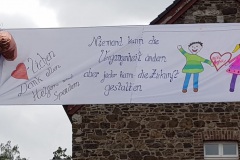 Lieben
Dank allen
Helfern und
Spendern
Niemand kann die
Vergangenheit ändern
aber jeder kann die Zukunft
gestalten